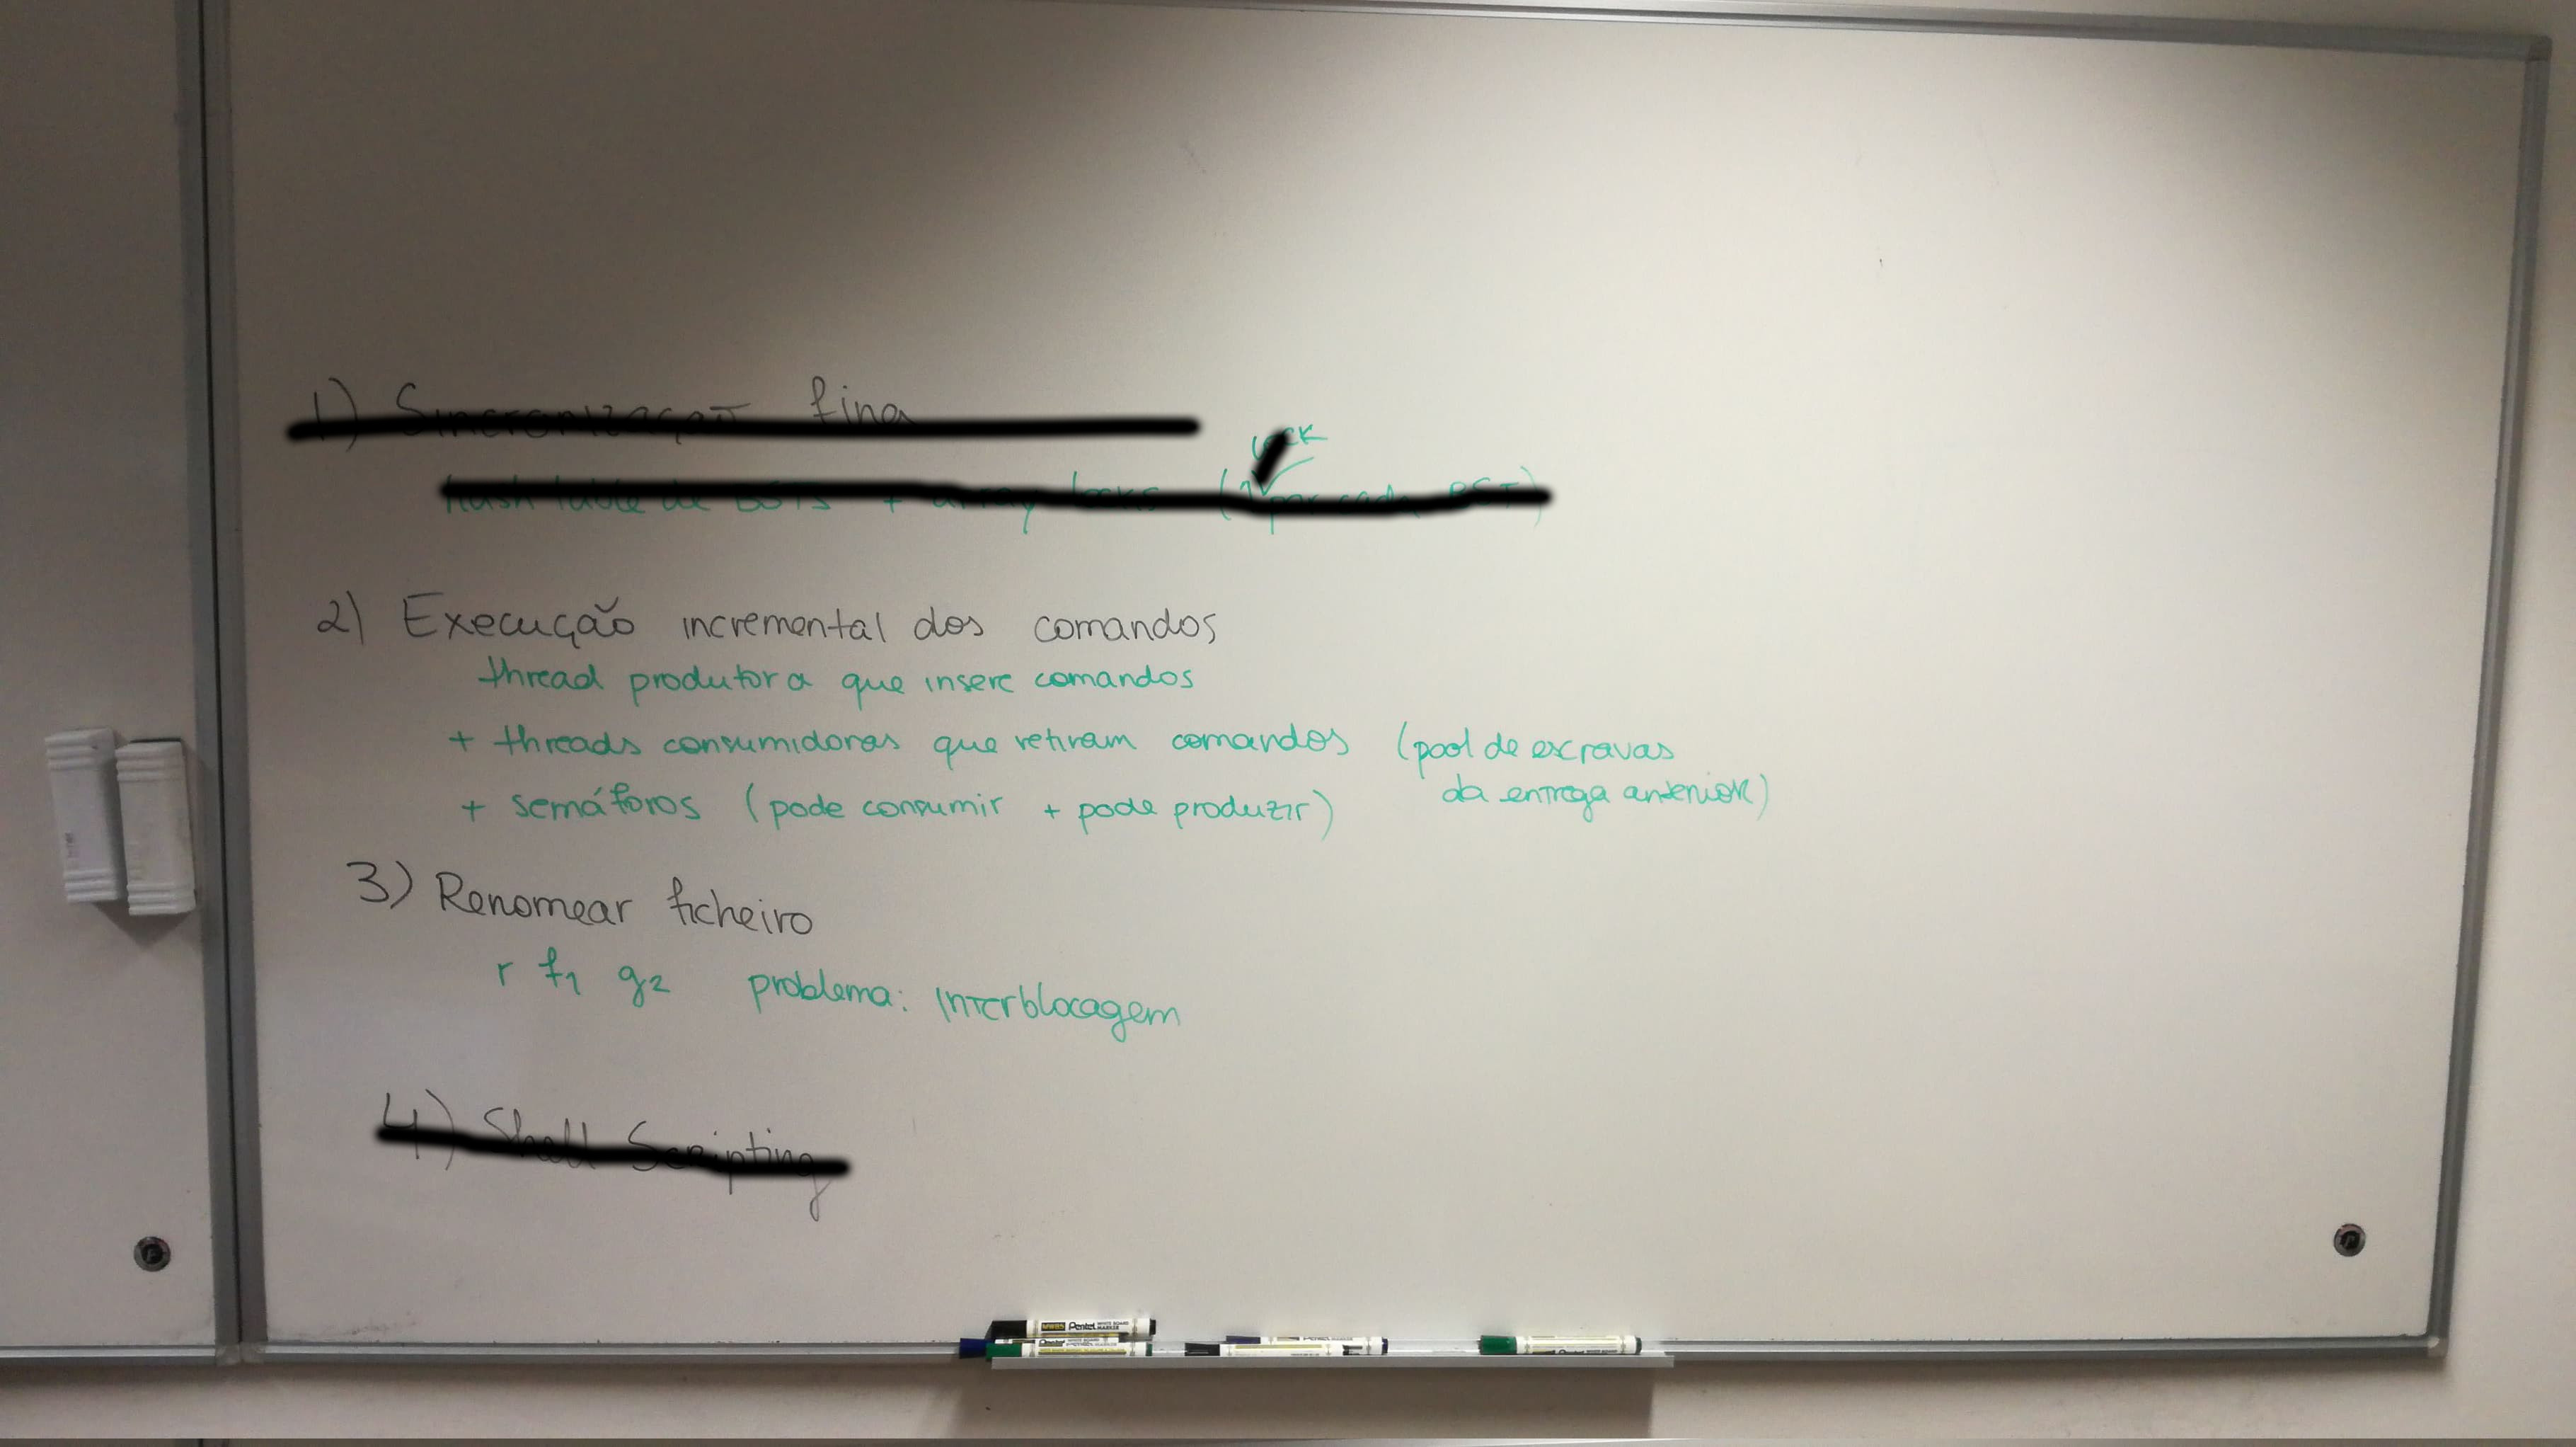 1) Sincronização fina
lock
hash table de BSTs + array locks (1 por cada BST)
2) Execução incremental dos comandos
thread produtora que insere comandos
+ threads consumidoras que retiram comandos (pool de escravas
da entrega anterior)
+ semáforos (pode consumir + pode produzir)
3) Renomear ficheiro
r f1 g2 problema: Interblocagem
4) Shell Scripting
Pentel